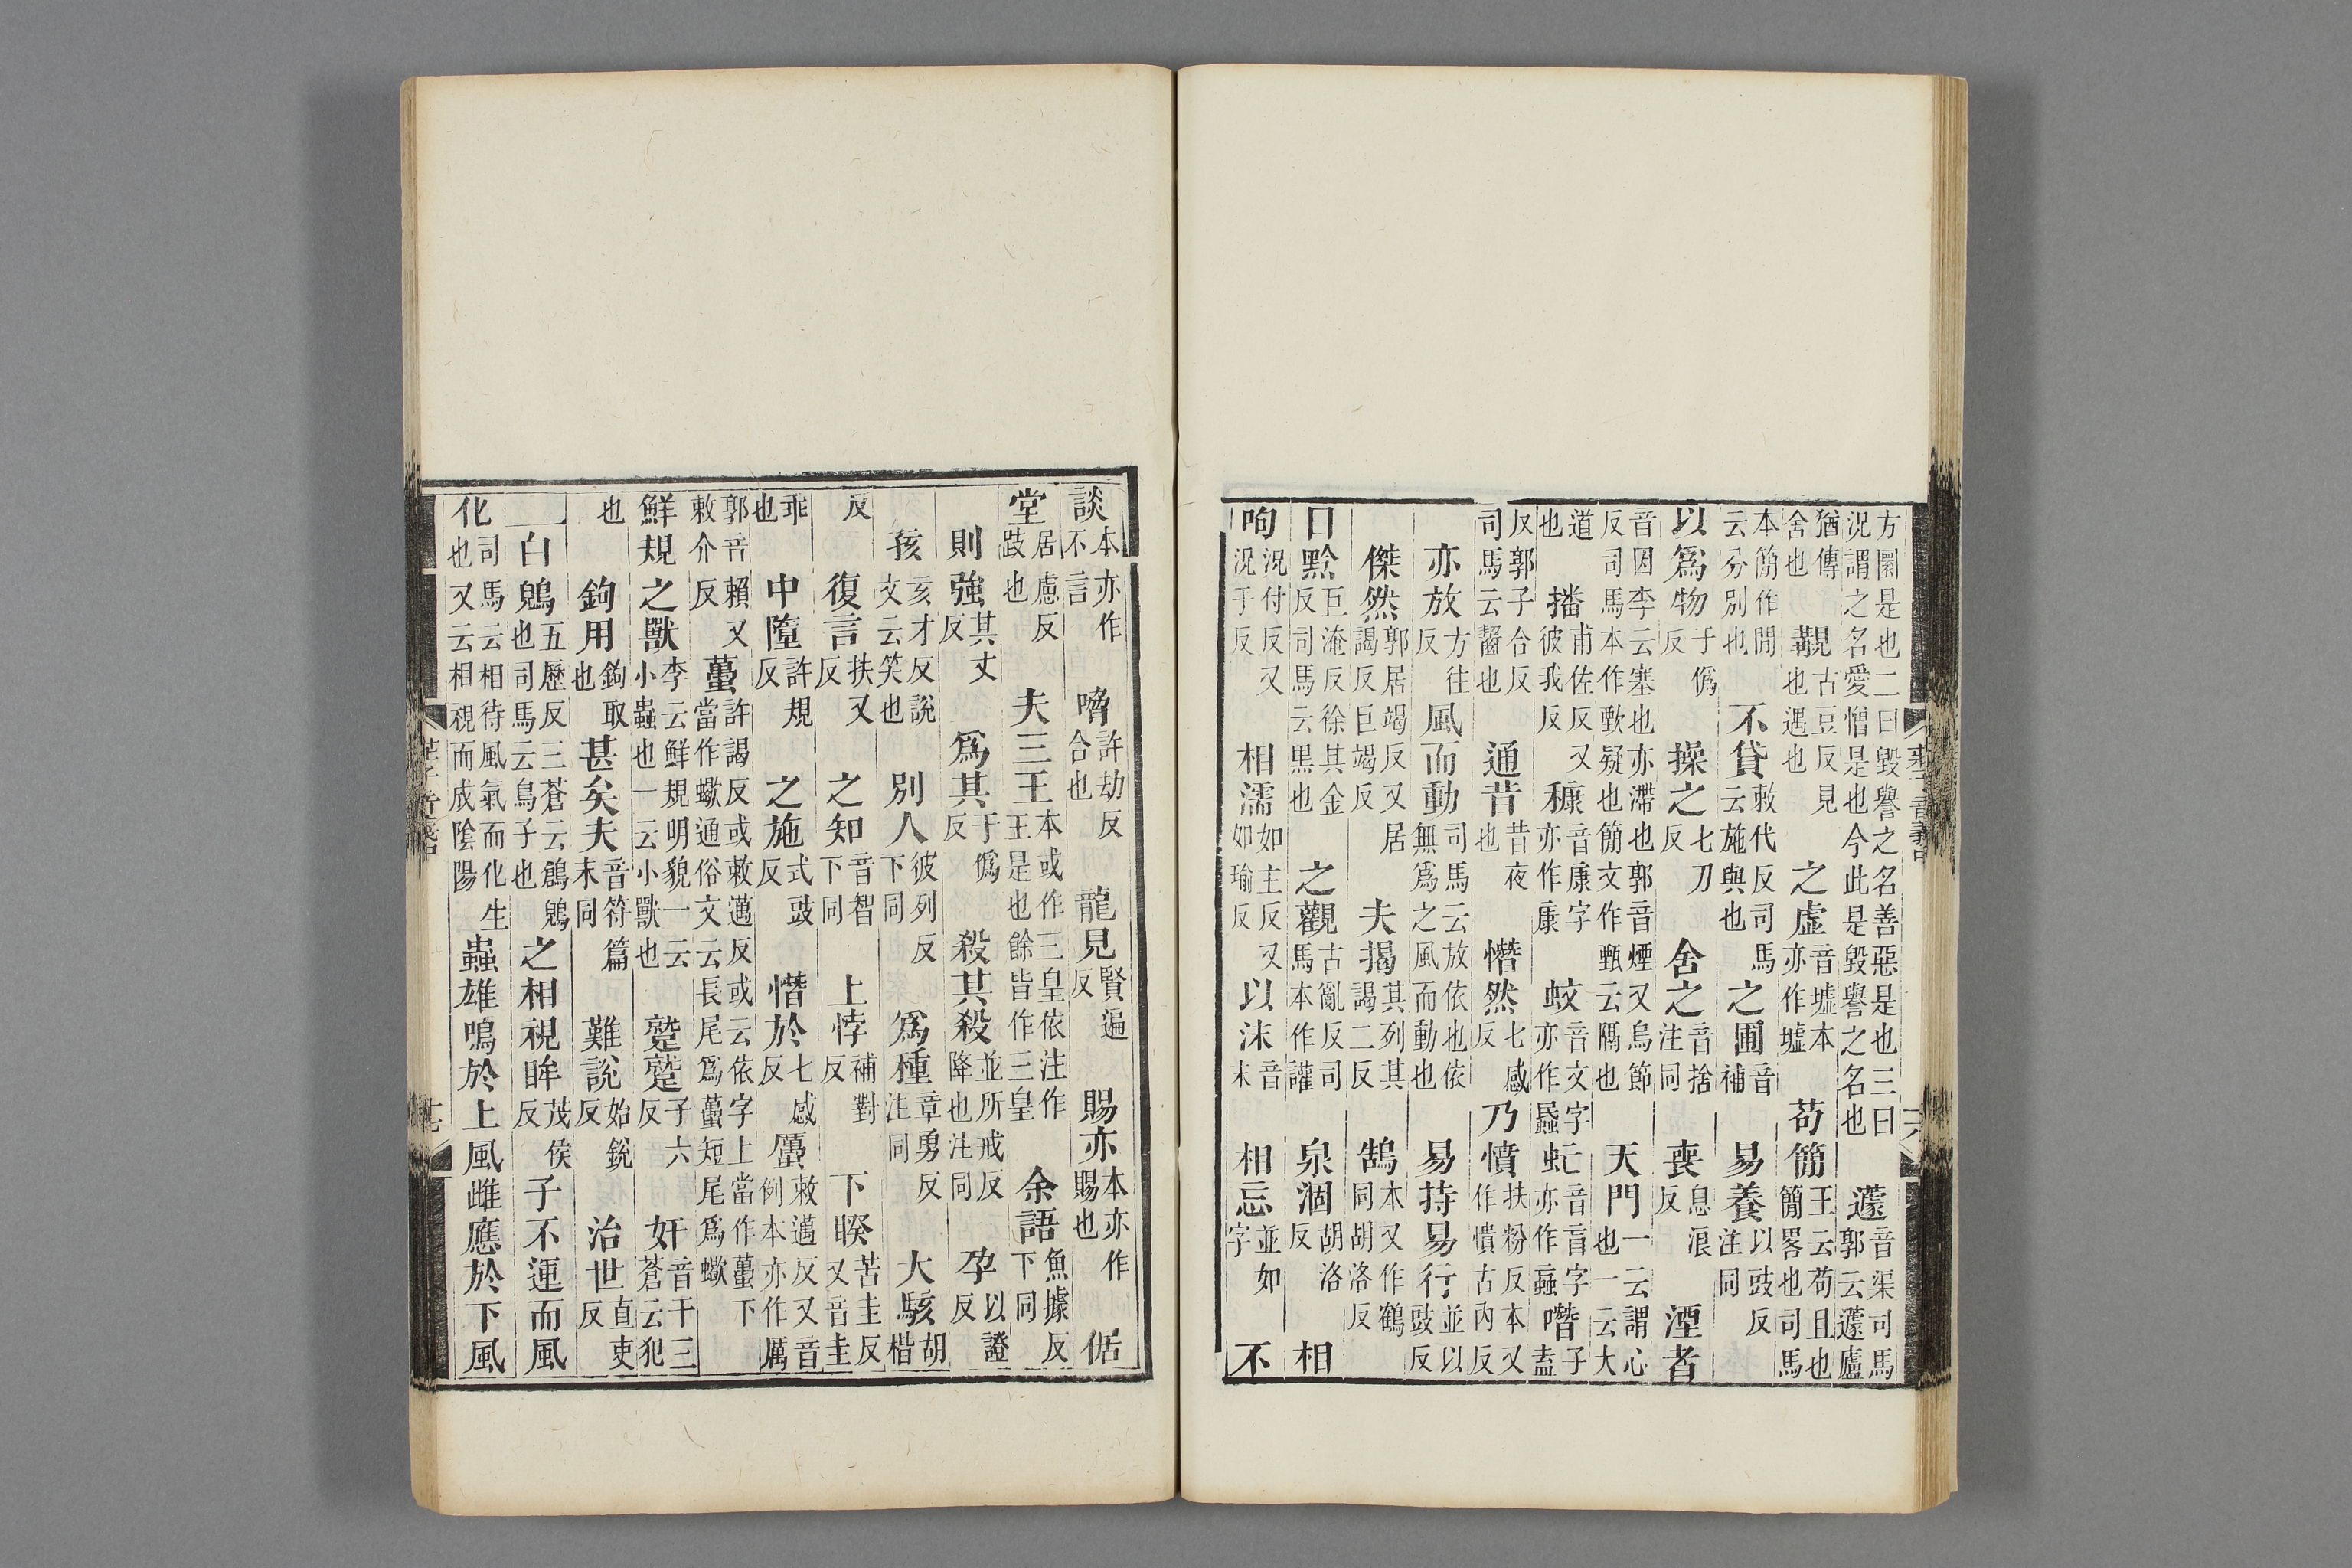 方圜是也二曰毀譽之名善惡是也三曰況謂之名愛憎是也今此是毀譽之名也蘧音渠司馬郭云蘧廬
猶傳舍也覯古豆反見也遇也之虛音墟本亦作墟苟簡王云苟且也簡畧也司馬
本簡作閒云分別也不貸敕代反司馬云施與也之圃音補易養以豉反注同
以爲物子僞反操之七刀反舍之音捨注同喪息浪反湮者
音因李云塞也亦滯也郭音煙又烏節反司馬本作歅疑也簡文作甄云隔也天門一云謂心也一云大
道也播甫佐反又彼我反穅音康字亦作康蚊音文字亦作䘇虻音盲字亦作蝱噆子盍
反郭子合反司馬云齧也通昔昔夜也憯然七感反乃憤扶粉反本又作憒古內反
亦放方往反風而動司馬云放依也依無爲之風而動也易持易行並以豉反
傑然郭居竭反又居謁反巨竭反夫揭其列其謁二反鵠本又作鶴同胡洛反
日黔巨淹反徐其金反司馬云黑也之觀古亂反司馬本作讙泉涸胡洛反相
呴況付反又況于反相濡如主反又如瑜反以沫音末相忘並如字不
莊子音義中 十六
談本亦作不言嗋許劫反合也龍見賢遍反賜亦本亦作賜也倨
堂居慮反跂也夫三王本或作三皇依注作王是也餘皆作三皇余語魚據反下同
則強其丈反爲其于僞反殺其殺並所戒反降也注同孕以證反
孩亥才反說文云笑也別人彼列反下同爲種章勇反注同大駭胡楷
反復言扶又反之知音智下同上悖補對反下睽苦圭反又音圭
乖也中墮許規反之施式豉反憯於七感反蠆敕邁反又音例本亦作厲
郭音賴又敕介反蠆許謁反或敕邁反或云依字上當作蠆下當作蠍通俗文云長尾爲蠆短尾爲蠍
鮮規之獸李云鮮規明貌一云小蟲也一云小獸也蹵蹵子六反奸音干三蒼云犯
也鉤用鉤取也甚矣夫音符篇末同難說始銳反治世直吏反
白鶂五歷反三蒼云鶬鶂也司馬云鳥子也之相視眸茂侯反子不運而風
化司馬云相待風氣而化生也又云相視而成陰陽蟲雄鳴於上風雌應於下風